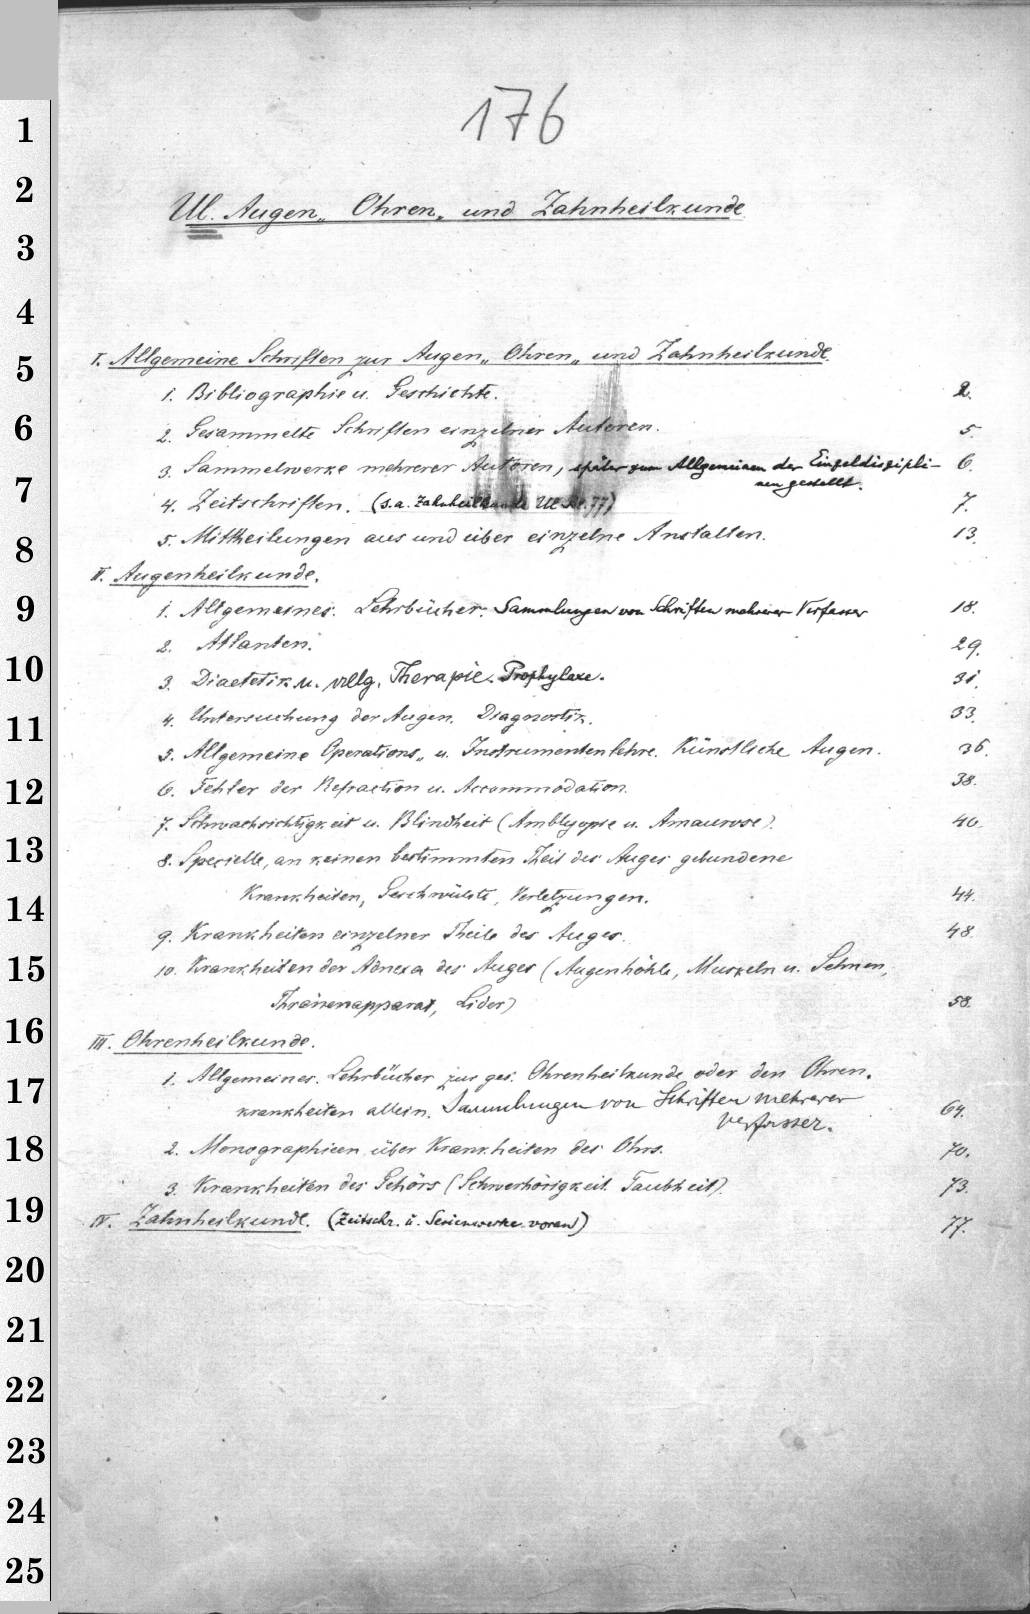 176
Ul. Augen- Ohren- und Zahnheilkunde
I. Allgemeine Schriften zur Augen- Ohren- und Zahnheilkunde.
1. Bibliographie u. Geschichte. 2.
2. Gesammelte Schriften einzelner Autoren. 5.
3. Sammelwerke mehrerer Autoren, später zum Allgemeinen der Einzeldiszipli- 6.
nen gestellt.
4. Zeitschriften. (s.a. Zahnheilkunde Ul 77) 7.
5. Mittheilungen aus und über einzelne Anstalten. 13.
II. Augenheilkunde.
1. Allgemeines. Lehrbücher. Sammlungen von Schriften mehrerer Verfasser 18.
2. Atlanten. 29.
3. Diaetetik u. allg. Therapie. Prophylaxe. 31.
4. Untersuchung der Augen. Diagnostik. 33.
5. Allgemeine Operations- u. Instrumentenlehre. Künstliche Augen. 36.
6. Fehler der Refraction u. Accommodation. 38.
7. Schwachsichtigkeit u. Blindheit (Amblyopie u. Amaurose). 40.
8. Specielle, an keinen bestimmten Theil des Auges gebundene
Krankheiten, Geschwülste, Verletzungen. 44.
9. Krankheiten einzelner Theile des Auges. 48.
10. Krankheiten der Adnexa des Auges (Augenhöhle, Muskeln u. Sehnen,
Thränenapparat, Lider) 58.
III. Ohrenheilkunde.
1. Allgemeines. Lehrbücher zur ges. Ohrenheilkunde oder den Ohren-
krankheiten allein. Sammlungen von Schriften mehrerer 64.
Verfasser.
2. Monographieen über Krankheiten des Ohrs. 70.
3. Krankheiten des Gehörs (Schwerhörigkeit. Taubheit). 73.
IV. Zahnheilkunde. (Zeitschr. u. Serienwerke voran) 77.
1
2
3
4
5
6
7
8
9
10
11
12
13
14
15
16
17
18
19
20
21
22
23
24
25